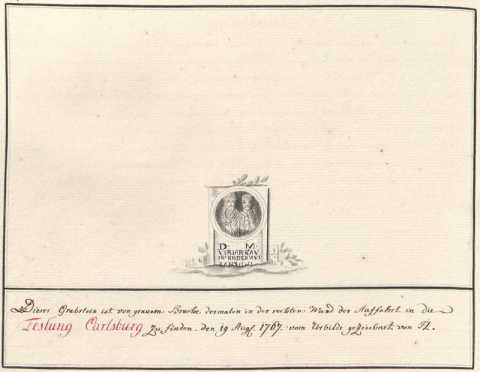 D M
Dieser Grabstein ist von grauem Bruche dermalen in der rechten Wand der Auffahrt in die
Festung Carlsburg zu finden. den 19 Aug. 1767. vom Urbilde gezeichnet von